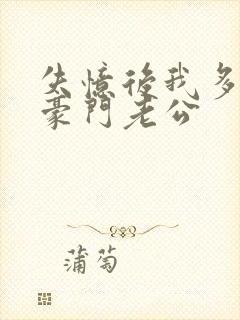 失憶後我多
豪門老公
蒲萄